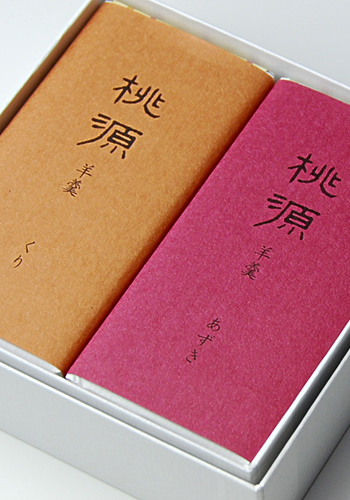 桃源
羊羹
くり
桃源
羊羹
あずき